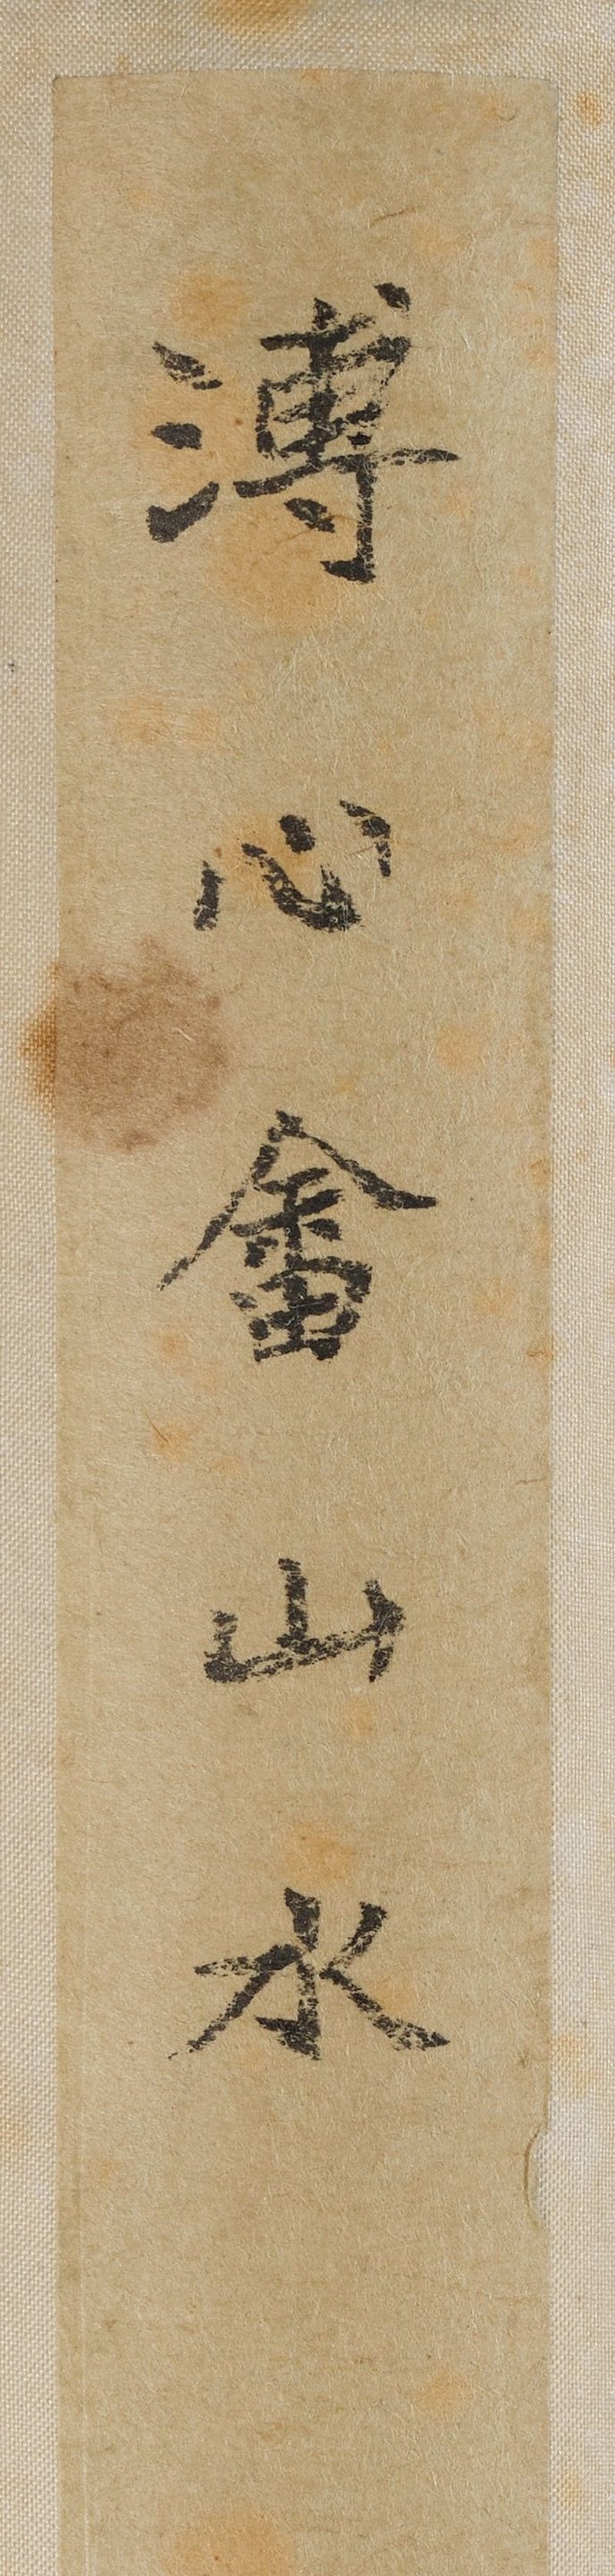 溥心畬山水